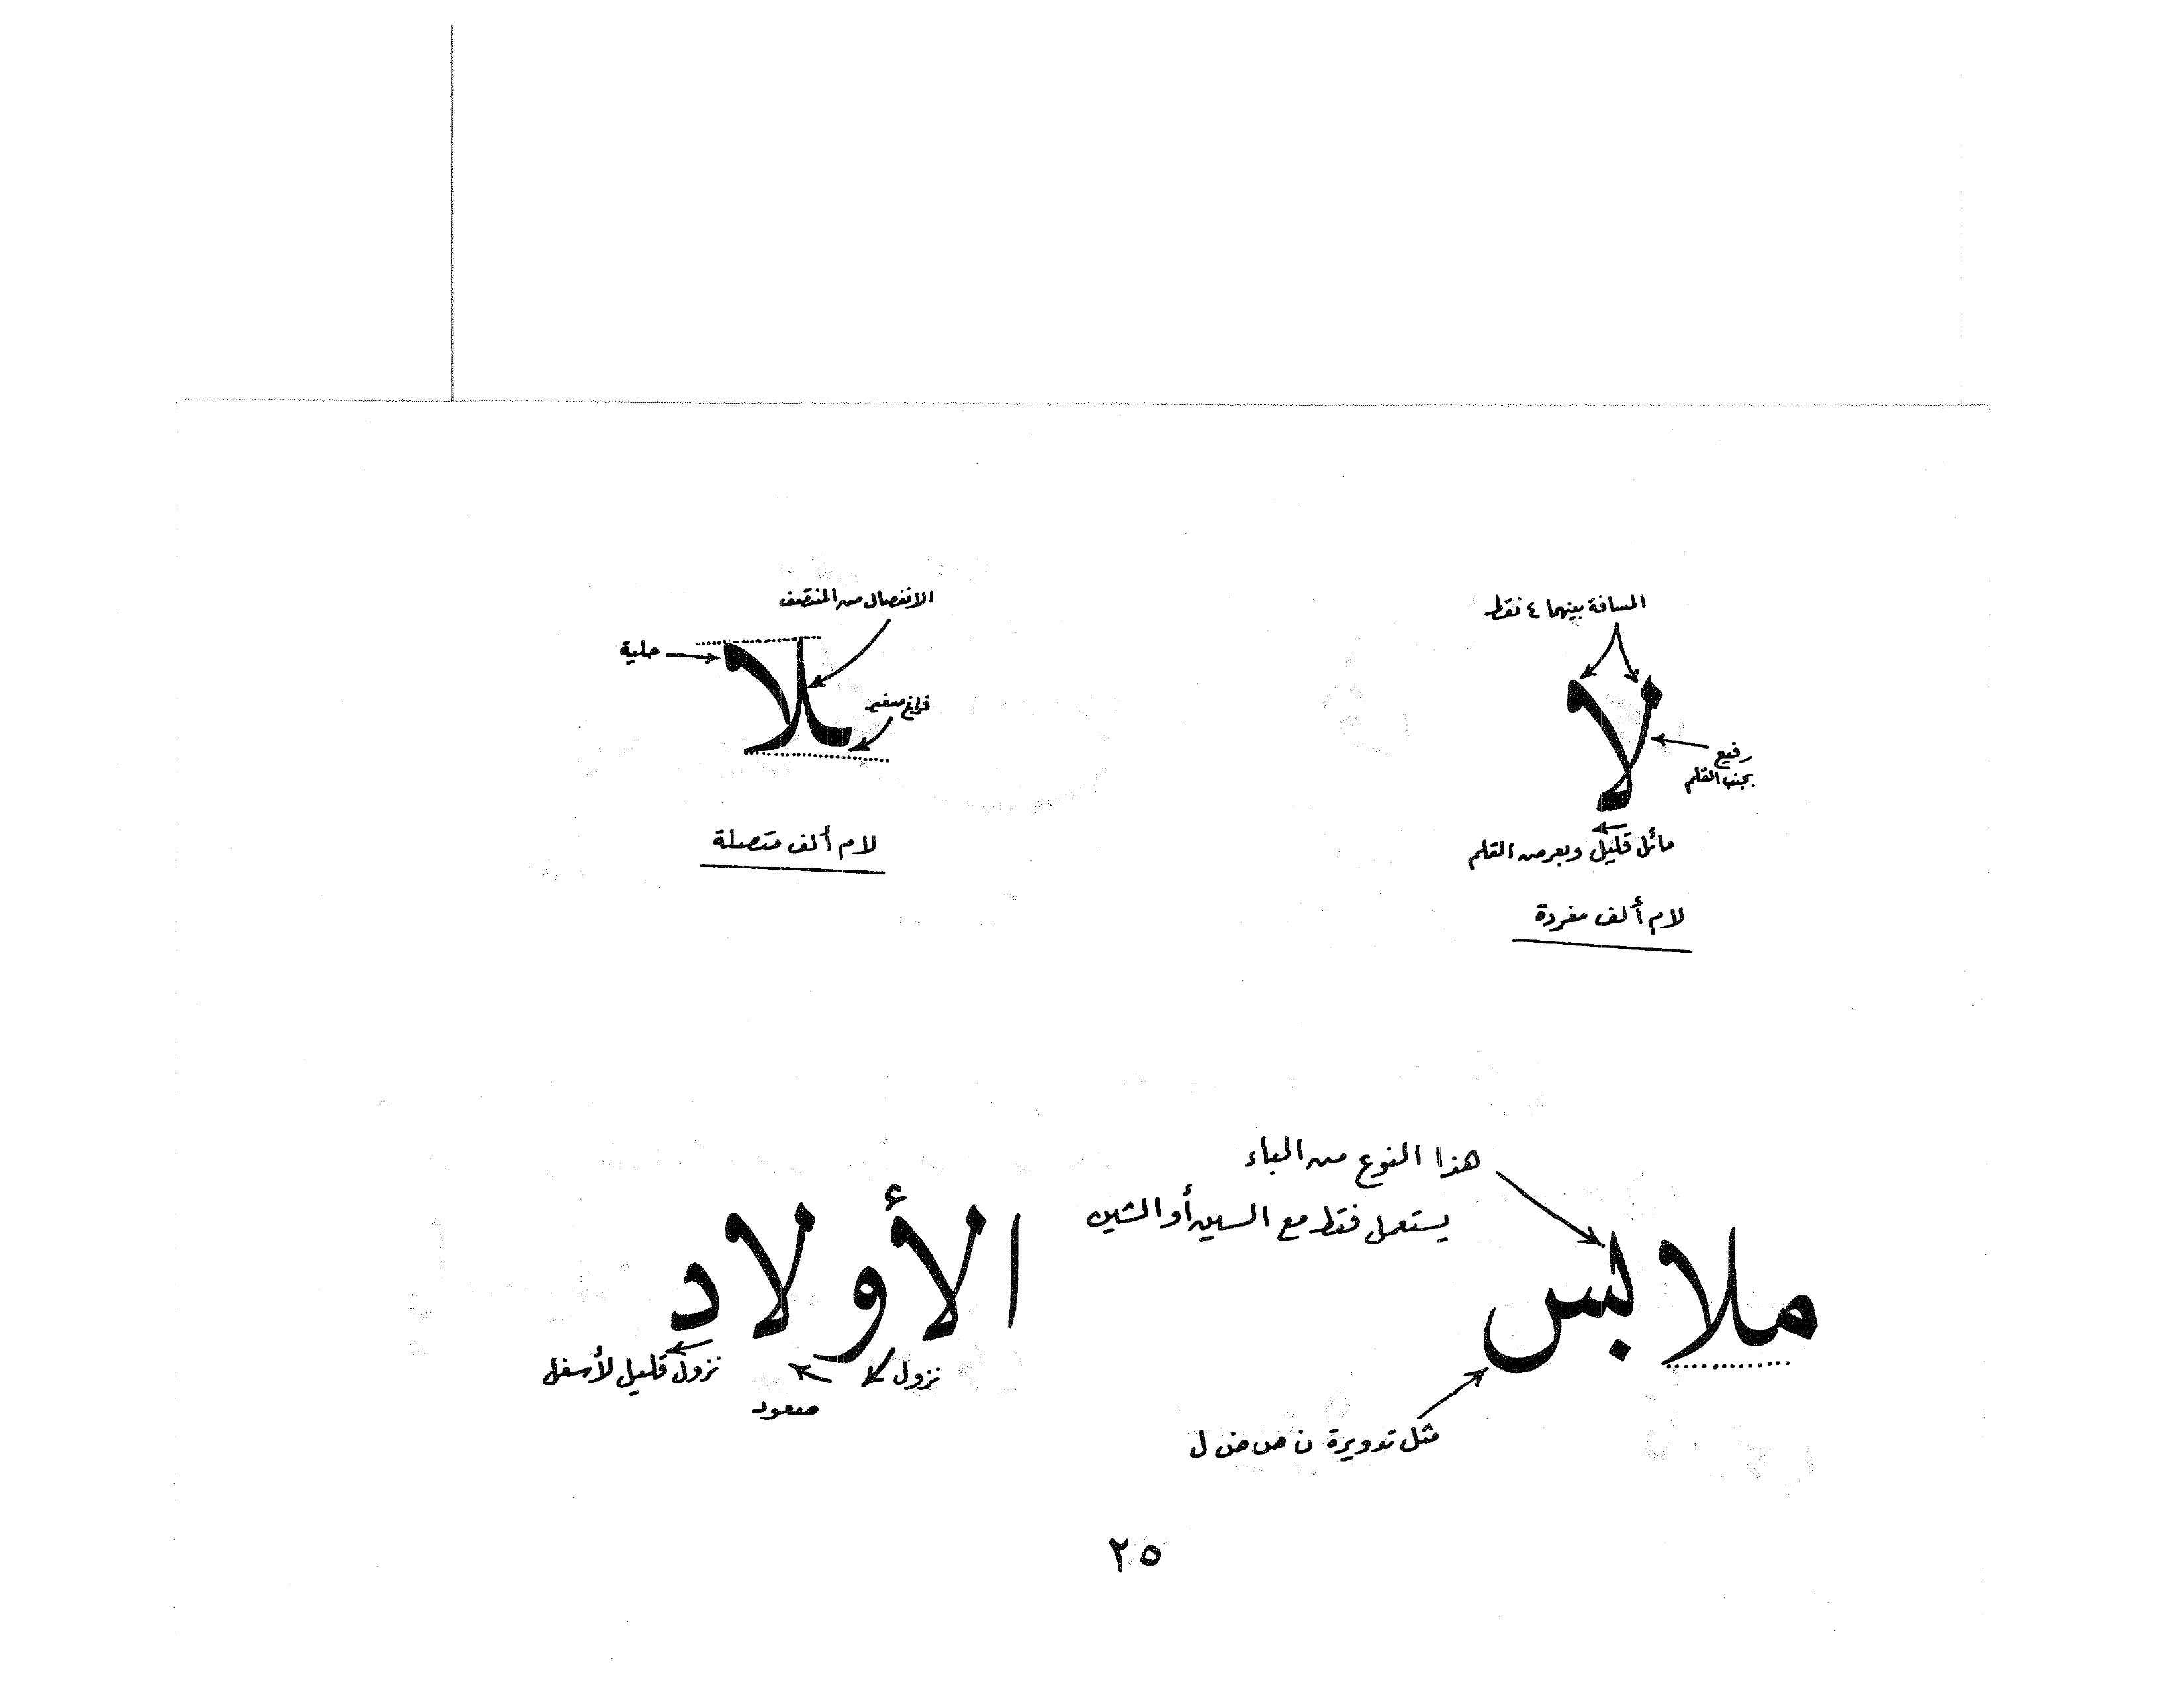 المسافة بينهما ٤ نقط
لا
رفيع
بجنب القلم
مائل قليل وبعرض القلم
لام ألف مفردة
الانفصال من المنتصف
حلية
ـلا
فراغ صغير
لام ألف متصلة
هذا النوع من الباء
يستعمل فقط مع السين أو الشين
ملابس
مثل تدويرة ن ص ض ل
الأولاد
نزول
صعود
نزول قليل لأسفل
٢٥